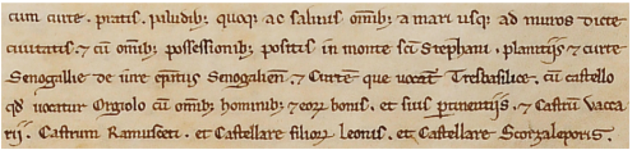 cum curte. pratis. piludib; quoq; ac saliuis om̄ib; a mari usq; ad muros dicte
ciuitatis. ⁊ cū om̄ib; possessionib; positis in monte sc̄i Stephani. planitijs ⁊ curte
Senogallie de iure q̄ntus Senogalien̄. ⁊ Curtē que uocat̄ Tresbasilice. cū castello
qd̄ uocatur Orgiolo cū om̄ib; hominib; ⁊ eoꝝ bonis. et suis ꝑtinentijs. ⁊ Castrū Vacca
rij. Castrum Ramusceti. et Castellare filioꝝ Leonis. et Castellare Scorzaleporis.